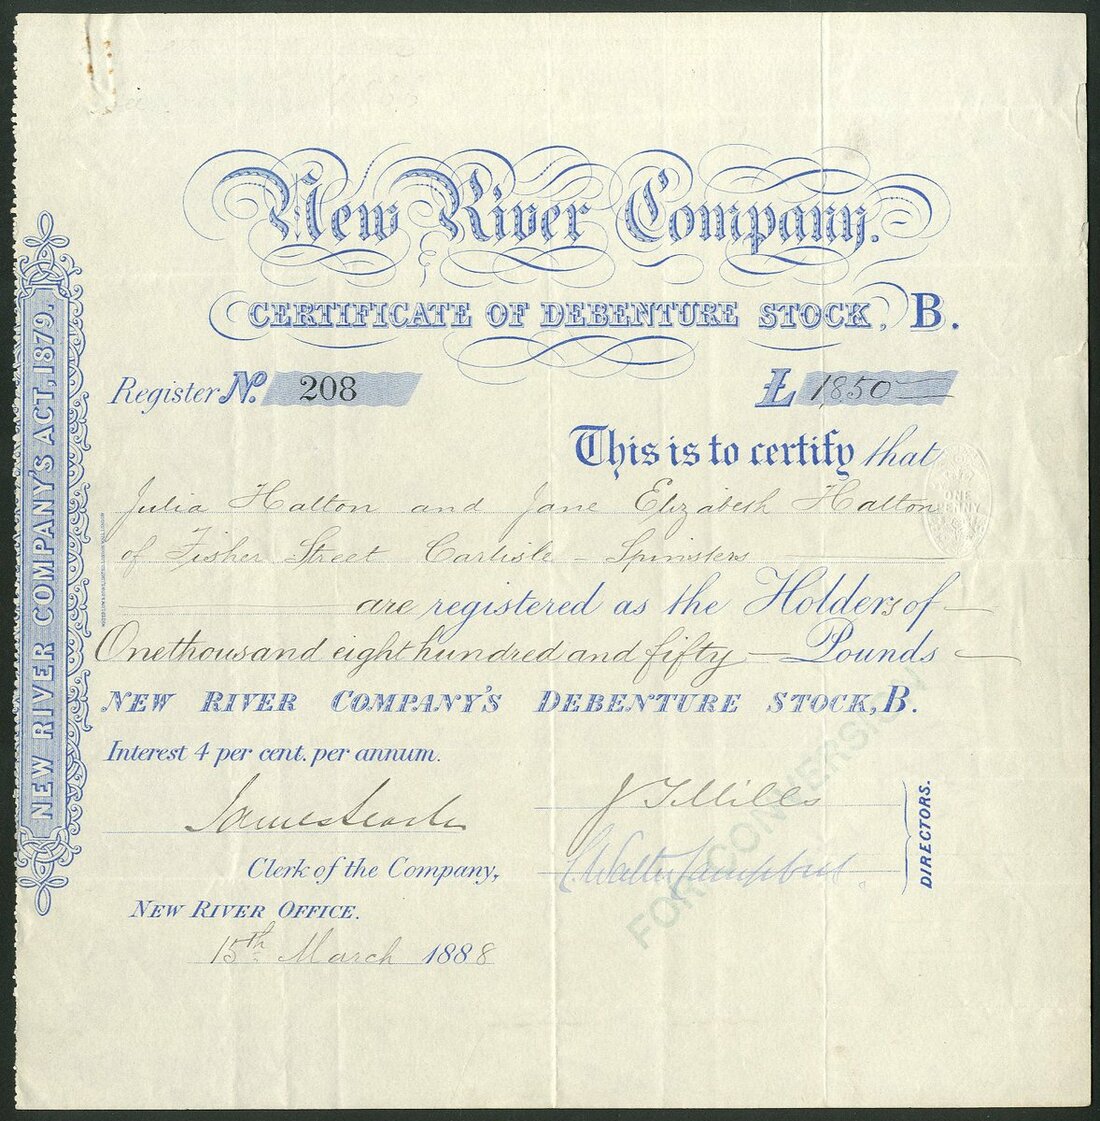 New River Company.
CERTIFICATE OF DEBENTURE STOCK, B.
Register No. 208
£ 1,850
This is to certify that
ONE PENNY
Julia Halton and Jane Elizabeth Halton
of Fisher Street Carlisle - Spinsters
are registered as the Holders of
One thousand eight hundred and fifty Pounds
NEW RIVER COMPANY'S DEBENTURE STOCK, B.
Interest 4 per cent. per annum.
J
Clerk of the Company,
Walter
DIRECTORS.
NEW RIVER OFFICE.
15th March 1888
FOR CONVERSION
NEW RIVER COMPANY'S ACT, 1879.